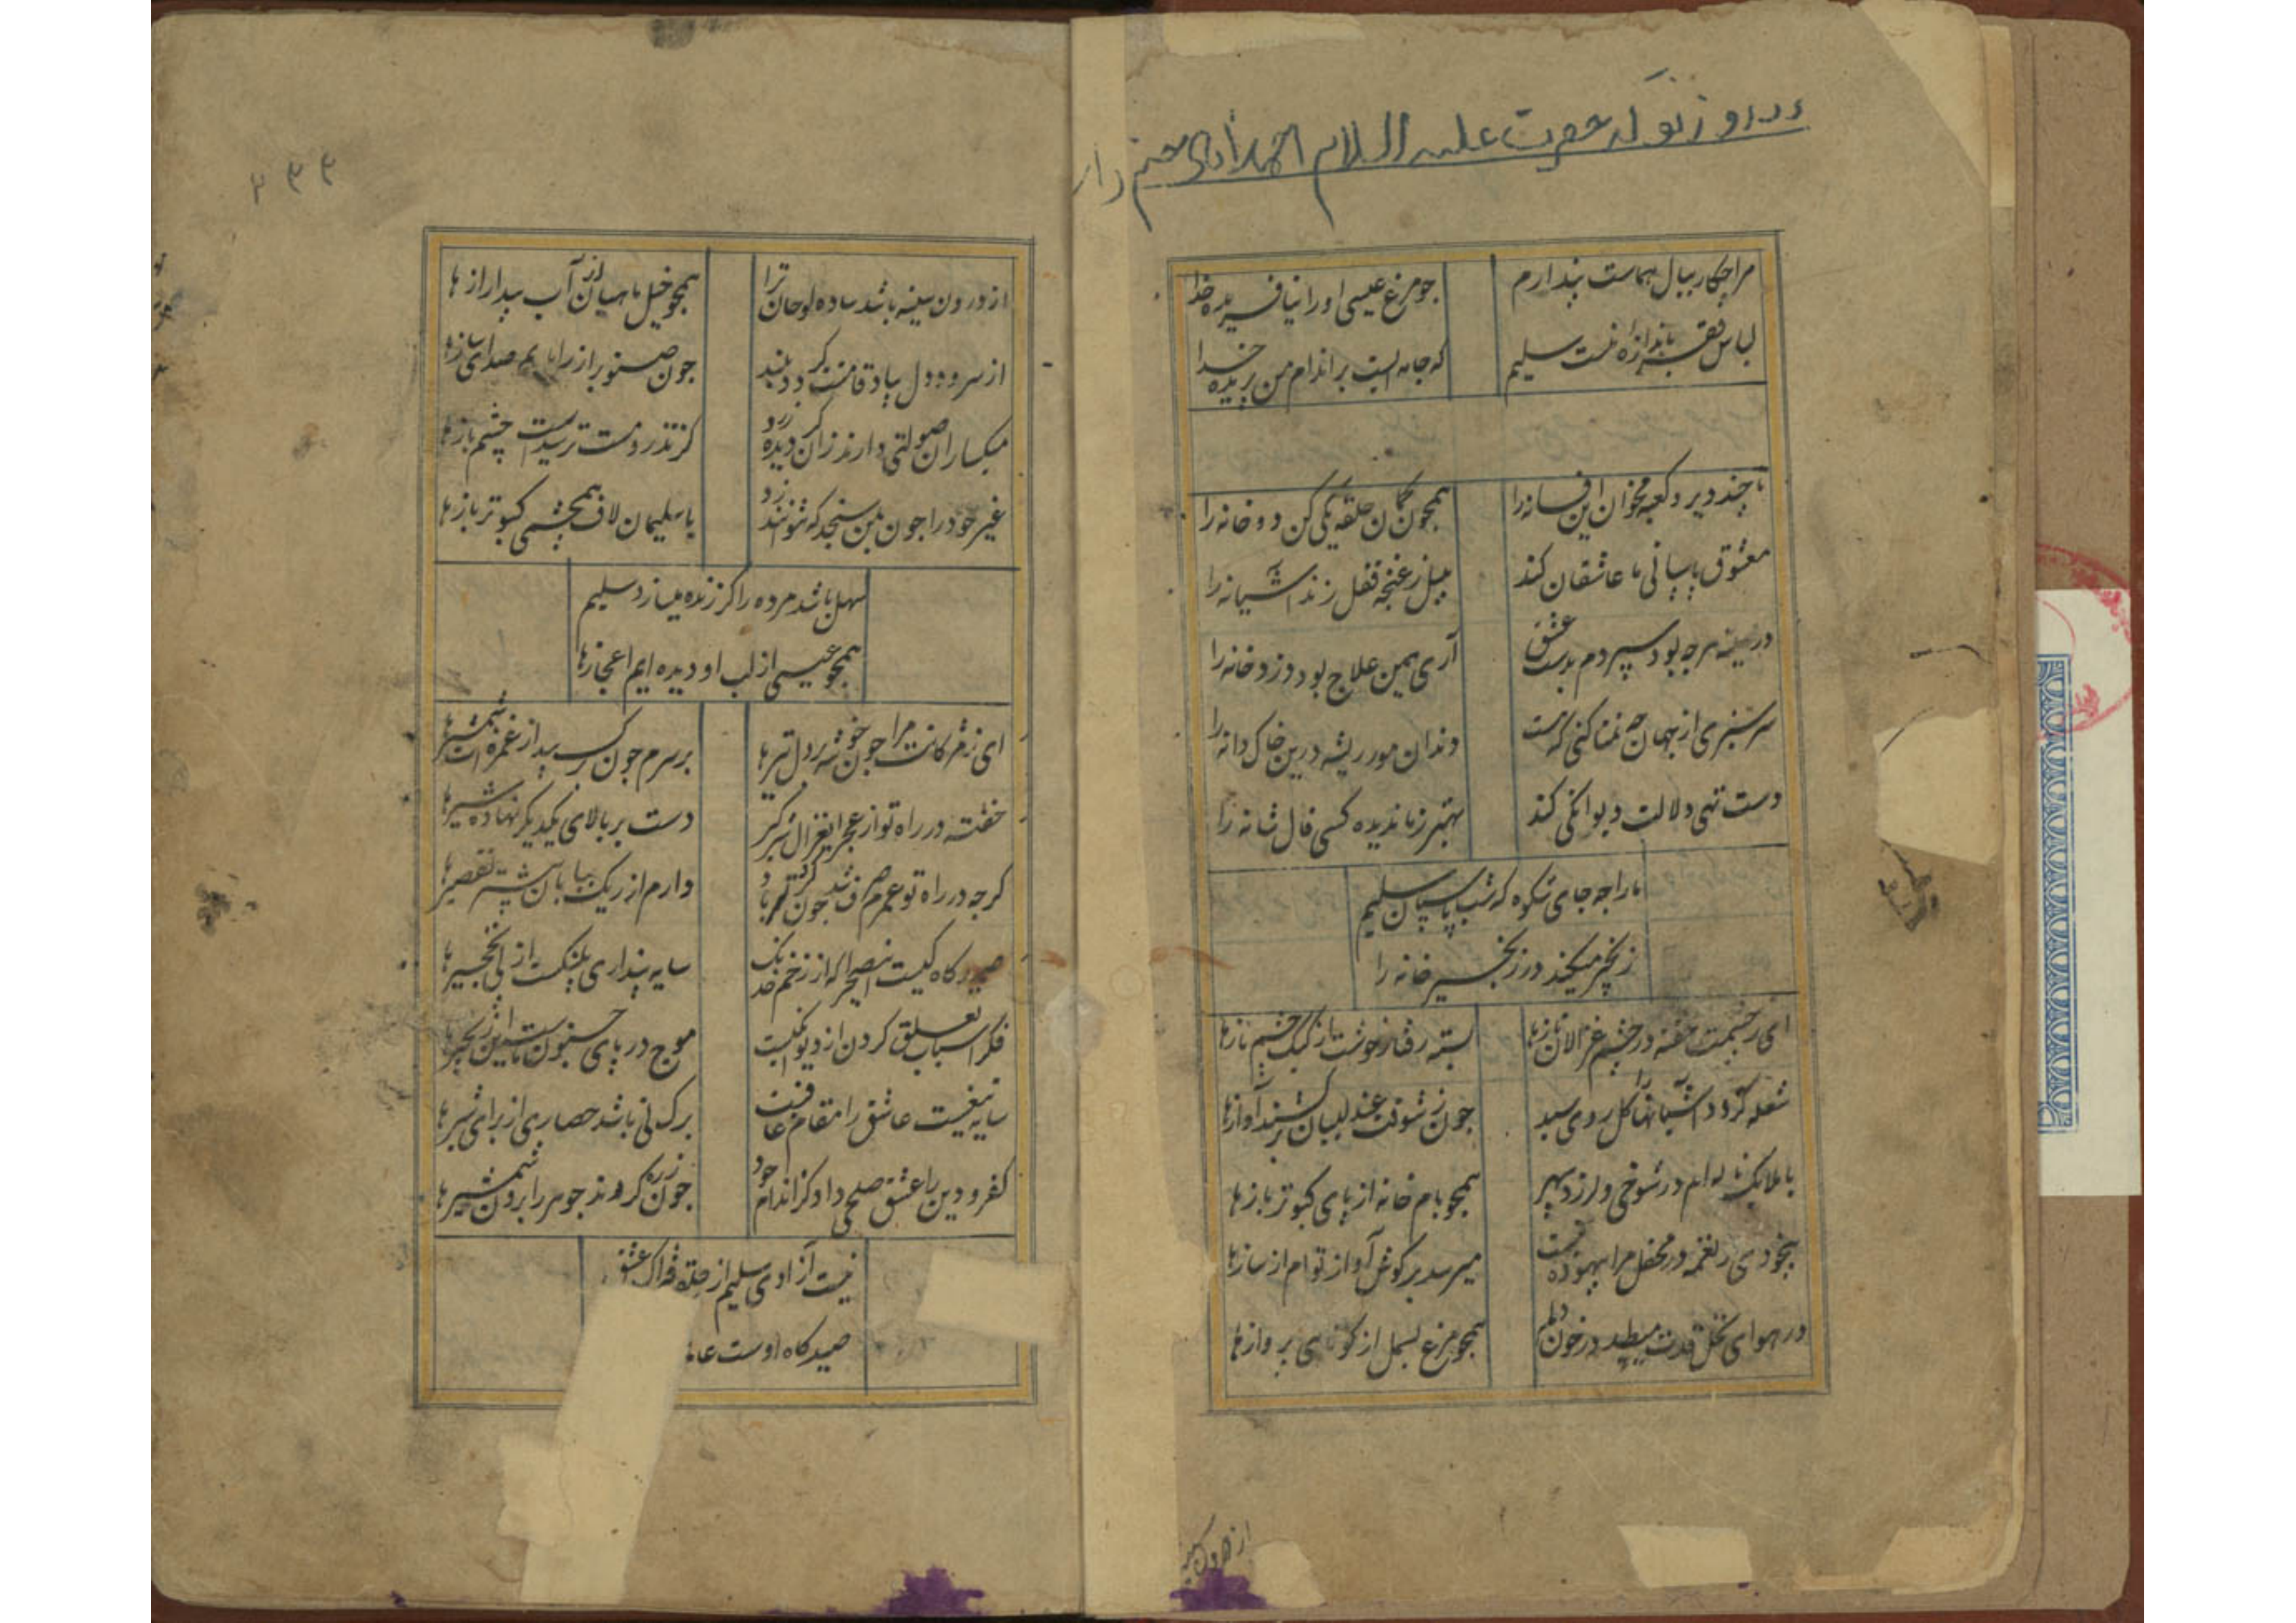 مرا چکار ببال هماست پندارم
جو مرغ عیسی او را نیافریده خدا
لباس فقر باندازه نست سلیم
که جامه ایست بر اندام من بریده خدا
تا چند دیر و کعبه مخوان این فسانه را
همچون کمان حلقه یکی کن دو خانه را
معشوق پاسبانی ما عاشقان کند
بلبل ز غنچه قفل زند آشیانه را
در سینه هرچه بود سپردم بدست عشق
آری همین علاج بود دزد خانه را
سرسبزی از جهان چه تمنا کنی که هست
دندان مور ریشه درین خاک دانه را
دست تهی دلالت دیوانکی کند
بهتر ز ما ندیده کسی فال شانه را
ما را چه جای شکوه که شب پاسبان سلیم
زنجیر میکند در زنجیر خانه را
ای ز چشمت خفته در چشم غزالان نازها
بسته رفتار خوشت از کبک چشم بازها
شعله کردد آشیانها را کل روی سبد
چون ز شوقت عندلیبان برکشند آوازها
با ملایک زاده ام در شوخی و لرزد سپهر
همچو بام خانه از پای کبوتر بازها
بیخودی نغمه در محفل مرا بیهوده نیست
میرسد بر کوش آواز توام از سازها
در هوای نخل قدت میطپد در خون دلم
همچو مرغ بسمل از کوتاهی پروازها
از درون سینه باشد ساده لوحان ترا
همچو خیل ماهیان از آب پیدا رازها
از سرود دل بیاد قامتت کردد بلند
چون صنوبر از رک ابریم صدای سازها
میکساران صولتی دارند زان کردیده زرد
کز تذرو مست ترسیدست چشم بازها
غیر خود را چون بمن سنجد که نتوانند زد
با سلیمان لاف همچشمی کبوتر بازها
سهل باشد مرده را کر زنده میسازد سلیم
همچو عیسی از لب او دیده ایم اعجازها
ای ز مژکانت مرا چون خوشه بر دل تیرها
بر سرم چون کرسید از غمزه ات شمشیرها
خفته در راه تو از عجز ای غزال شیرکیر
دست بر بالای یکدیکر نهاده شیرها
کرچه در راه تو عمرم صرف شد چون کردباد
دارم از ریک بیابان بیشتر تقصیرها
صیدکاه کیست این صحرا که از زخم خدنک
سایه پنداری پلنکست از پی نخجیرها
فکر اسباب تعلق کردن از دیوانکیست
موج در پای جنون ماست این زنجیرها
سایه تیغیست عاشق را مقام عافیت
برک نی باشد حصاری از برای شیرها
کفر و دین را عشق صلحی داد کز اندام خود
چون زره کردند جوهر را برون شمشیرها
نیست آزادی سلیم از حلقه فتراک عشق
صیدکاه اوست